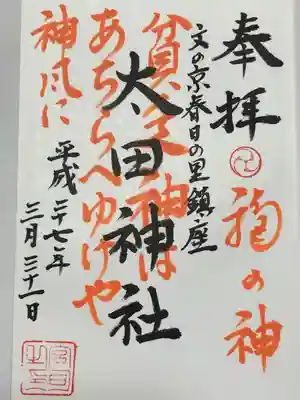 奉拝
福の神
文の京春日の里鎮座
太田神社
貧乏神は
あちらへゆけや
神風に
平成二十七年
三月二十一日
宮司之印